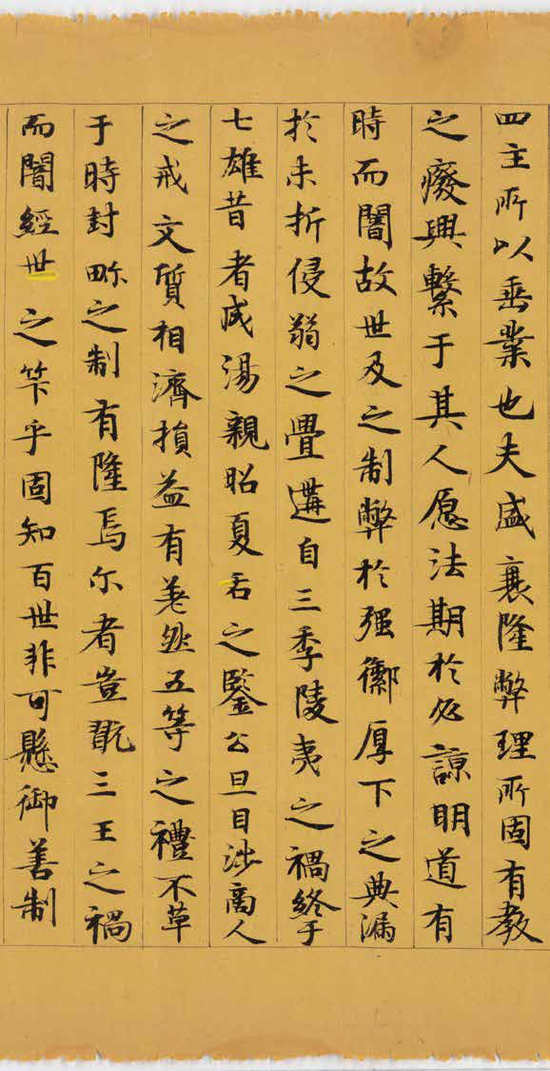 四主所以垂業也夫盛衰隆弊理所固有教
之癈興繫于其人愿法期於必諒明道有
時而闇故世及之制弊於强禦厚下之典漏
於末折侵弱之疊遘自三季陵夷之禍終于
七雄昔者成湯親昭夏后之鑒公旦目涉商人
之戒文質相濟損益有然五等之禮不革
于時封畛之制有隆焉尔者豈翫三王之禍
而闇經世之笇乎固知百世非可懸御善制